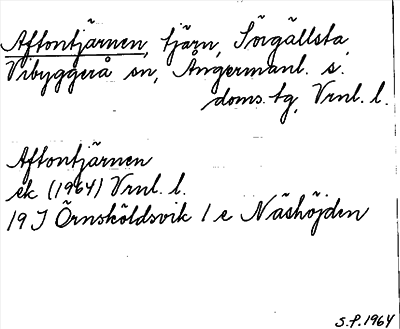 Aftontjärnen, tjärn, Sörgällsta,
Vibyggerå sn, Ångermanl. s.
doms.tg, Vrnl. l.
Aftontjärnen
ek (1964) Vrnl. l.
19 J Örnsköldsvik 1 e Näshöjden
S.P. 1964